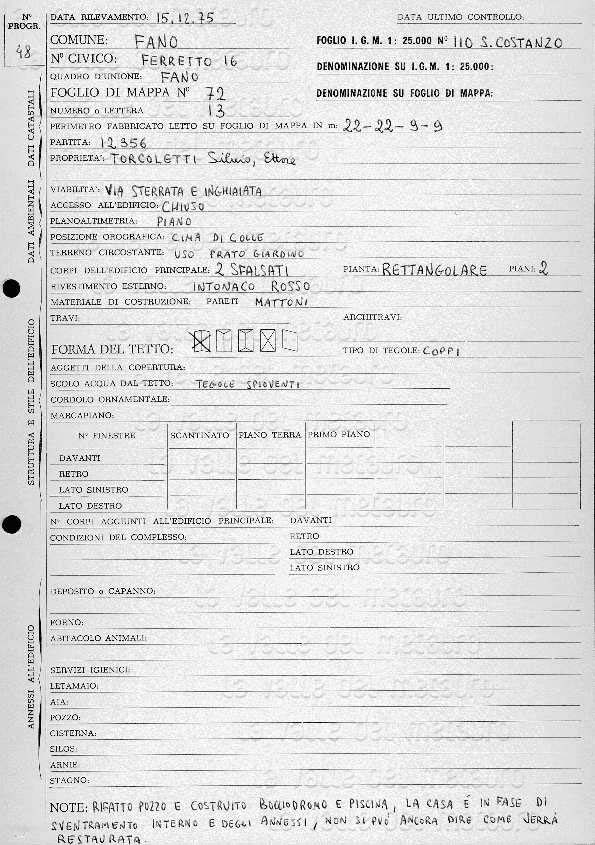 N° PROGR. 48
DATA RILEVAMENTO: 15.12.75 DATA ULTIMO CONTROLLO:
COMUNE: FANO FOGLIO I. G. M. 1: 25.000 N° 110 S. COSTANZO
N° CIVICO: FERRETTO 16 DENOMINAZIONE SU I.G.M. 1: 25.000:
QUADRO D'UNIONE: FANO
FOGLIO DI MAPPA N° 72 DENOMINAZIONE SU FOGLIO DI MAPPA:
NUMERO o LETTERA 13
PERIMETRO FABBRICATO LETTO SU FOGLIO DI MAPPA IN m: 22-22-9-9
PARTITA: 12356
PROPRIETA': TORCOLETTI Silvio, Ettore
VIABILITA': VIA STERRATA E INGHIAIATA
ACCESSO ALL'EDIFICIO: CHIUSO
PLANOALTIMETRIA: PIANO
POSIZIONE OROGRAFICA: CIMA DI COLLE
TERRENO CIRCOSTANTE: USO PRATO GIARDINO
CORPI DELL'EDIFICIO PRINCIPALE: 2 SFALSATI PIANTA: RETTANGOLARE PIANI: 2
RIVESTIMENTO ESTERNO: INTONACO ROSSO
MATERIALE DI COSTRUZIONE: PARETI MATTONI
TRAVI: ARCHITRAVI:
FORMA DEL TETTO: TIPO DI TEGOLE: COPPI
AGGETTI DELLA COPERTURA:
SCOLO ACQUA DAL TETTO: TEGOLE SPIOVENTI
CORDOLO ORNAMENTALE:
MARCAPIANO:
N° FINESTRE SCANTINATO PIANO TERRA PRIMO PIANO
DAVANTI
RETRO
LATO SINISTRO
LATO DESTRO
N° CORPI AGGIUNTI ALL'EDIFICIO PRINCIPALE: DAVANTI
CONDIZIONI DEL COMPLESSO: RETRO
LATO DESTRO
LATO SINISTRO
DEPOSITO o CAPANNO:
FORNO:
ABITACOLO ANIMALI:
SERVIZI IGIENICI:
LETAMAIO:
AIA:
POZZO:
CISTERNA:
SILOS:
ARNIE:
STAGNO:
NOTE: RIFATTO POZZO E COSTRUITO BOCCIODROMO E PISCINA, LA CASA É IN FASE DI
SVENTRAMENTO INTERNO E DEGLI ANNESSI, NON SI PUÓ ANCORA DIRE COME VERRÁ
RESTAURATA.
DATI CATASTALI
DATI AMBIENTALI
STRUTTURA E STILE DELL'EDIFICIO
ANNESSI ALL'EDIFICIO
le valle del metauro